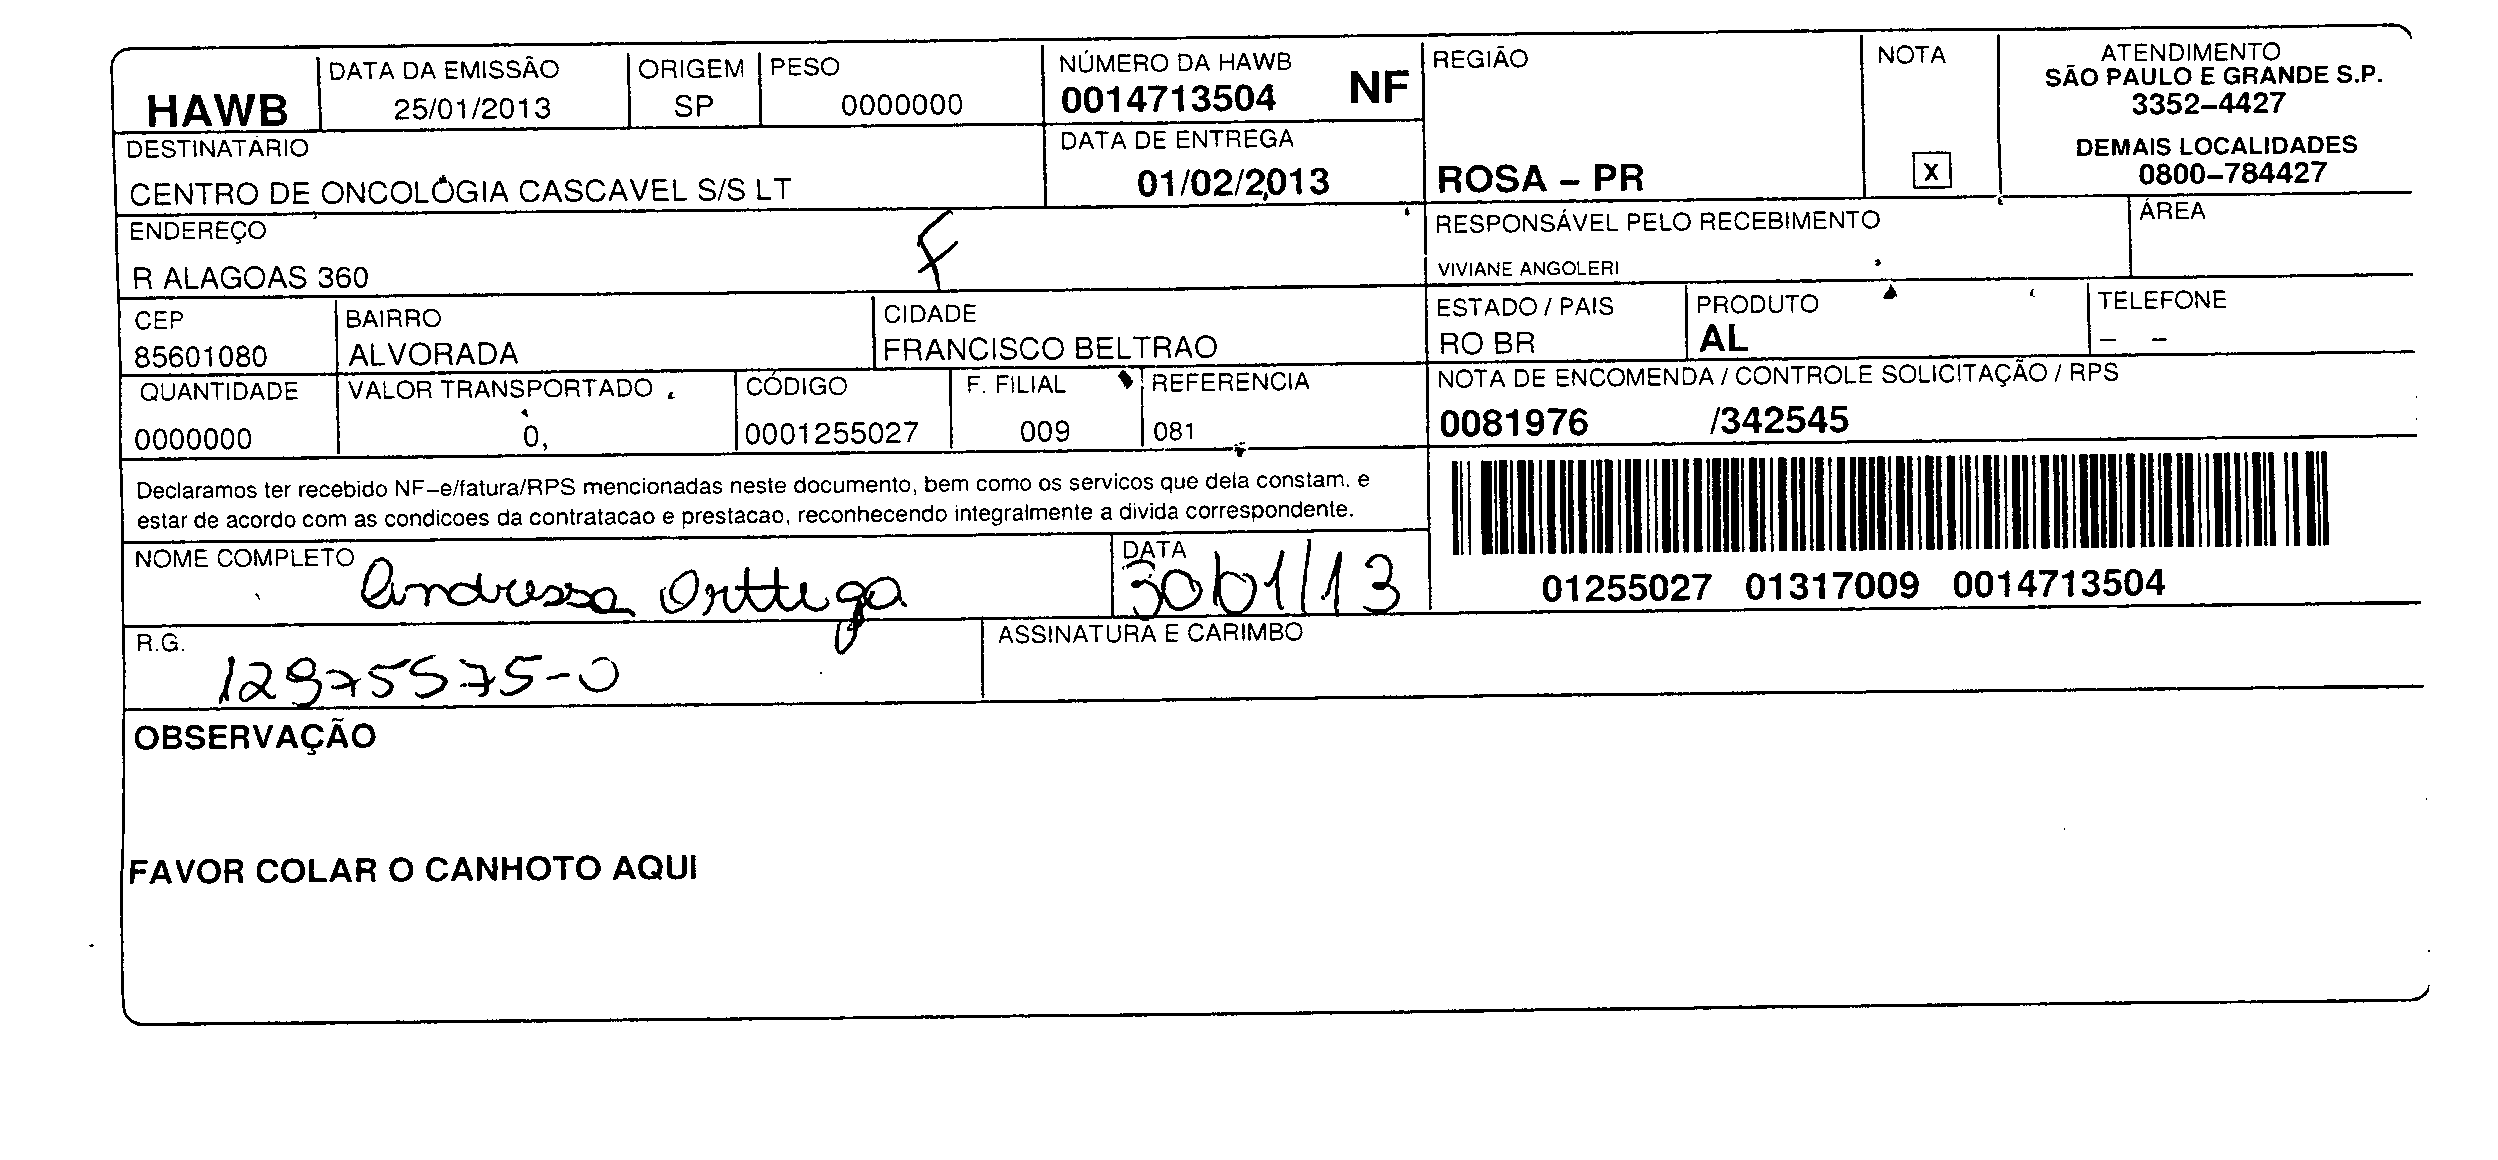 HAWB
DATA DA EMISSÃO
25/01/2013
ORIGEM
SP
PESO
0000000
NÚMERO DA HAWB
0014713504 NF
REGIÃO
ROSA – PR
NOTA
X
ATENDIMENTO
SÃO PAULO E GRANDE S.P.
3352–4427
DEMAIS LOCALIDADES
0800–784427
DESTINATÁRIO
CENTRO DE ONCOLOGIA CASCAVEL S/S LT
DATA DE ENTREGA
01/02/2013
ENDEREÇO
R ALAGOAS 360
F
RESPONSÁVEL PELO RECEBIMENTO
VIVIANE ANGOLERI
ÁREA
CEP
85601080
BAIRRO
ALVORADA
CIDADE
FRANCISCO BELTRAO
ESTADO / PAIS
RO BR
PRODUTO
AL
TELEFONE
– –
QUANTIDADE
0000000
VALOR TRANSPORTADO
0,
CÓDIGO
0001255027
F. FILIAL
009
REFERENCIA
081
NOTA DE ENCOMENDA / CONTROLE SOLICITAÇÃO / RPS
0081976 /342545
Declaramos ter recebido NF–e/fatura/RPS mencionadas neste documento, bem como os servicos que dela constam. e
estar de acordo com as condicoes da contratacao e prestacao, reconhecendo integralmente a divida correspondente.
01255027 01317009 0014713504
NOME COMPLETO
Andressa Orttega
DATA
30/01/13
R.G.
12975575-0
ASSINATURA E CARIMBO
OBSERVAÇÃO
FAVOR COLAR O CANHOTO AQUI